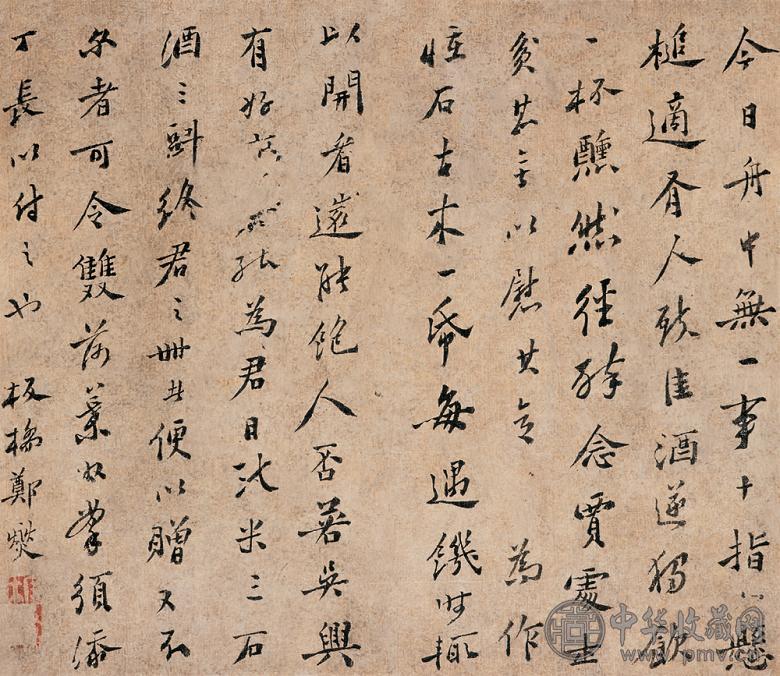 今日舟中無一事十指如懸
槌適有人致佳酒遂獨飲
一杯醺然徑醉念賈處士
貧甚無以慰其意為作
怪石古木一紙每遇饑時輒
以開看還能飽人否若吳興
有好能為君日致米三石
酒三㪷終君之世便以贈又不
尔者可令雙荷葉收掌須添
丁長以付之也 板橋鄭燮
中华收藏网
www.pmv.cn